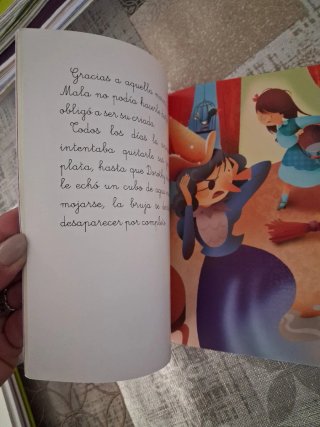 Gracias a aquella
Mala no podía hacerle
obligó a ser su criada.
Todos los días la
intentaba quitarle sus
plata, hasta que Dorothy
le echó un cubo de agua
mojarse, la bruja se
desaparecer por completo